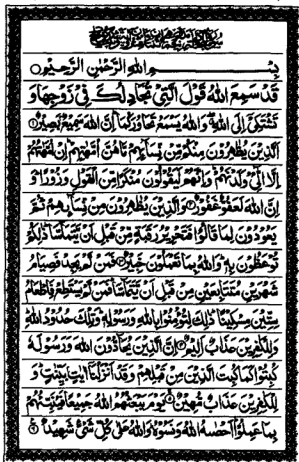 بِسْمِ اللهِ الرَّحْمٰنِ الرَّحِيْمِ
قَدْ سَمِعَ اللهُ قَوْلَ الَّتِيْ تُجَادِلُكَ فِيْ زَوْجِهَا وَ
تَشْتَكِيْٓ اِلَى اللهِ وَاللهُ يَسْمَعُ تَحَاوُرَكُمَا اِنَّ اللهَ سَمِيْعٌۢ بَصِيْرٌ ۝
اَلَّذِيْنَ يُظٰهِرُوْنَ مِنْكُمْ مِّنْ نِّسَآئِهِمْ مَّا هُنَّ اُمَّهٰتِهِمْ اِنْ اُمَّهٰتُهُمْ
اِلَّا الّٰٓئِيْ وَلَدْنَهُمْ وَاِنَّهُمْ لَيَقُوْلُوْنَ مُنْكَرًا مِّنَ الْقَوْلِ وَزُوْرًا وَ
اِنَّ اللهَ لَعَفُوٌّ غَفُوْرٌ ۝ وَالَّذِيْنَ يُظٰهِرُوْنَ مِنْ نِّسَآئِهِمْ ثُمَّ
يَعُوْدُوْنَ لِمَا قَالُوْا فَتَحْرِيْرُ رَقَبَةٍ مِّنْ قَبْلِ اَنْ يَّتَمَآسَّا ذٰلِكُمْ
تُوْعَظُوْنَ بِهٖ وَاللهُ بِمَا تَعْمَلُوْنَ خَبِيْرٌ ۝ فَمَنْ لَّمْ يَجِدْ فَصِيَامُ
شَهْرَيْنِ مُتَتَابِعَيْنِ مِنْ قَبْلِ اَنْ يَّتَمَآسَّا فَمَنْ لَّمْ يَسْتَطِعْ فَاِطْعَامُ
سِتِّيْنَ مِسْكِيْنًا ذٰلِكَ لِتُؤْمِنُوْا بِاللهِ وَرَسُوْلِهٖ وَتِلْكَ حُدُوْدُ اللهِ
وَلِلْكٰفِرِيْنَ عَذَابٌ اَلِيْمٌ ۝ اِنَّ الَّذِيْنَ يُحَآدُّوْنَ اللهَ وَرَسُوْلَهٗ
كُبِتُوْا كَمَا كُبِتَ الَّذِيْنَ مِنْ قَبْلِهِمْ وَقَدْ اَنْزَلْنَآ اٰيٰتٍۢ بَيِّنٰتٍ وَ
لِلْكٰفِرِيْنَ عَذَابٌ مُّهِيْنٌ ۝ يَوْمَ يَبْعَثُهُمُ اللهُ جَمِيْعًا فَيُنَبِّئُهُمْ
بِمَا عَمِلُوْا اَحْصٰهُ اللهُ وَنَسُوْهُ وَاللهُ عَلٰى كُلِّ شَيْءٍ شَهِيْدٌ ۝